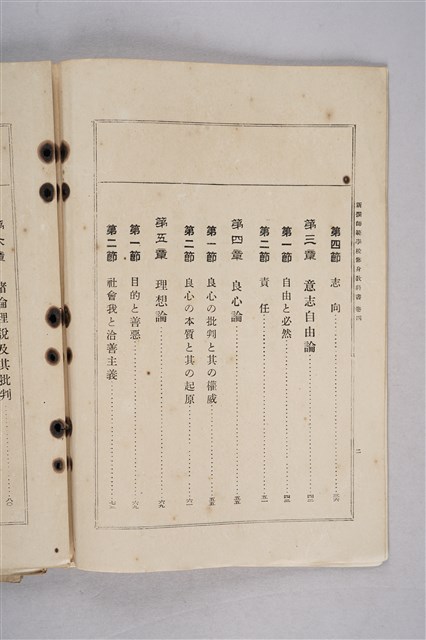 新撰師範學校修身教科書 卷四
二
第四節 志向……三六
第三章 意志自由論……四三
第一節 自由と必然……四三
第二節 責任……五一
第四章 良心論……五五
第一節 良心の批判と其の權威……五五
第二節 良心の本質と其の起原……六一
第五章 理想論……六九
第一節 目的と善惡……六九
第二節 社會我と洽善主義……七一
第六章 諸倫理說及其批判……八〇